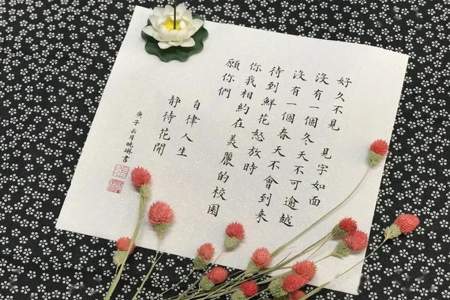 好久不見 見字如面
沒有一個冬天不可逾越
沒有一個春天不會到來
待到鮮花怒放時
你我相約在美麗的校園
願你們
自律人生
靜待花開
庚子二月曉琳書